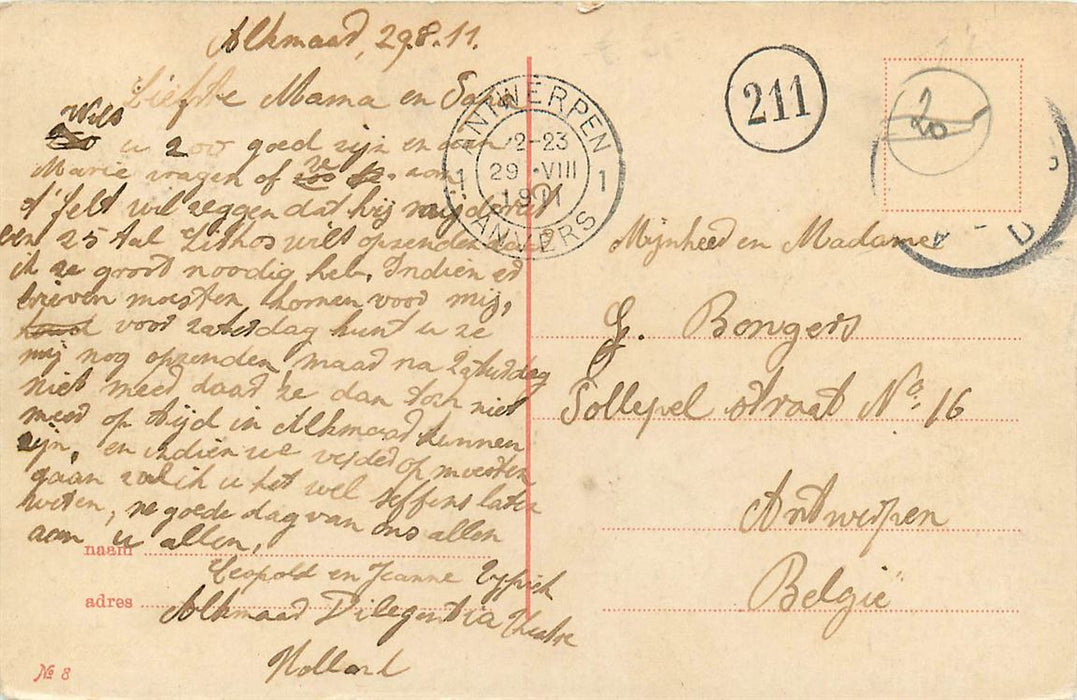 Alkmaar, 29.8.11.
Liefste Mama en Papa
Wilt
u zoo goed zijn en aan
Marie vragen of aan
t' felt wil zeggen dat hij mij direct
een 25 tal Lithos wilt opzenden daar
ik ze groot noodig heb. Indien er
brieven moesten komen voor mij,
voor zaterdag kunt u ze
mij nog opzenden, maar na Zaturdag
niet meer daar ze dan toch niet
meer op tijd in Alkmaar kunnen
zijn, en indien we verder op moesten
gaan zal ik u het wel seffens laten
weten, ne goede dag van ons allen
aan u allen,
naam
Leopold en Jeanne
adres
Alkmaar Diligentia Theatre
Holland
№ 8
ANTWERPEN
1 1
2-23
29 VIII
1911
ANVERS
211
20
Mijnheer en Madame
G. Bongers
Pollepel straat No. 16
Antwerpen
België